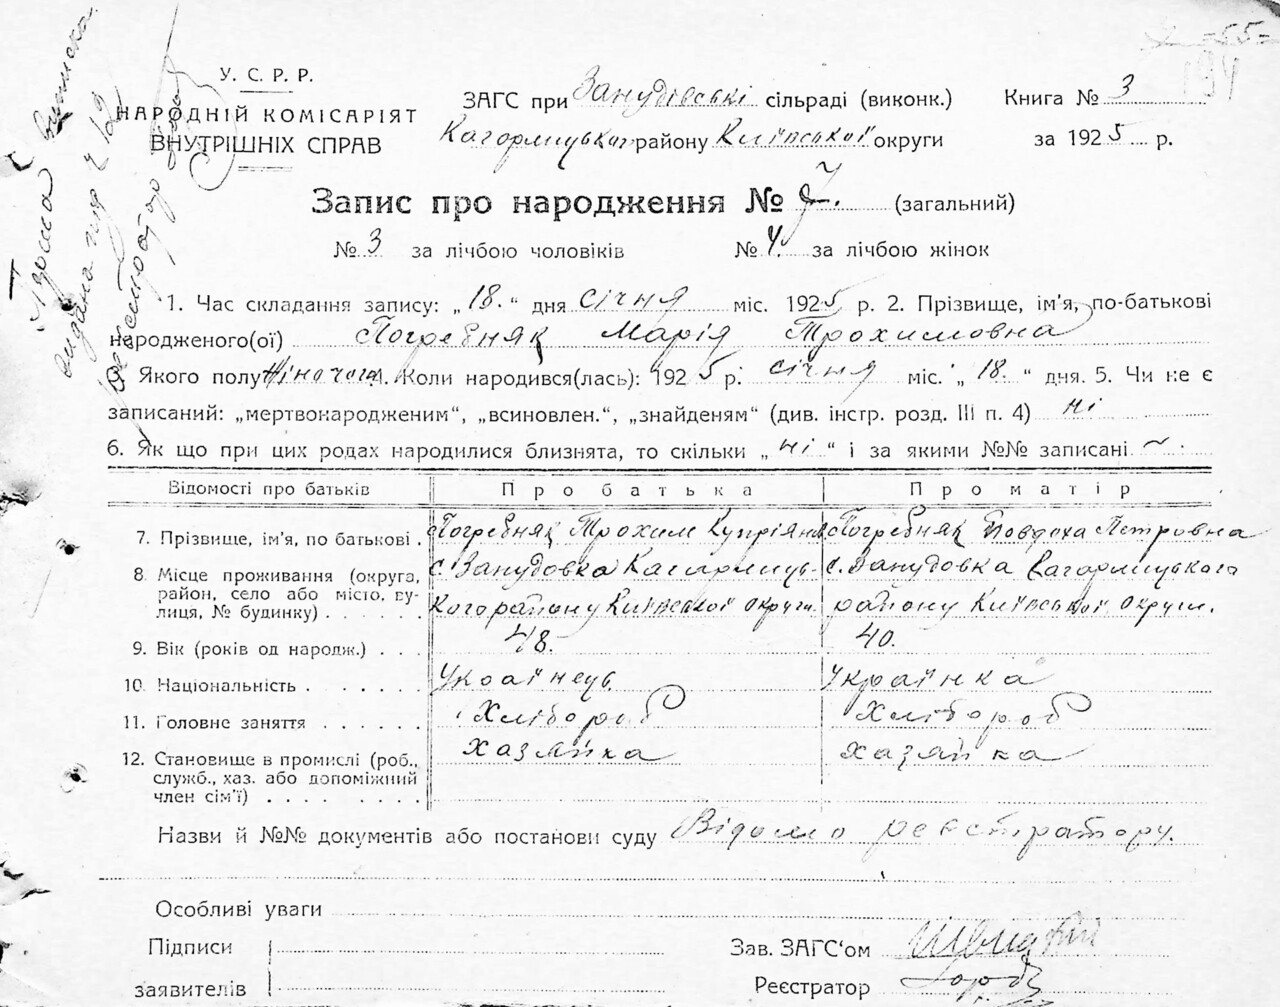 -55-
194
У. С. Р. Р.
НАРОДНІЙ КОМІСАРІЯТ
ВНУТРІШНІХ СПРАВ
ЗАГС при Занудівські сільраді (виконк.)
Кагорлицького району Київської округи
Книга № 3
за 1925 р.
виписка
видана під ч 12
Запис про народження № 7. (загальний)
№ 3 за лічбою чоловіків № 4. за лічбою жінок
1. Час складання запису: „18.“ дня січня міс. 1925 р. 2. Прізвище, ім'я, по-батькові
народженого(ої) Погребняк Марія Трохимовна
3. Якого полу жіночого 4. Коли народився(лась): 1925 р. січня міс. „18.“ дня. 5. Чи не є
записаний: „мертвонародженим“, „всиновлен.“, „знайденям“ (див. інстр. розд. III п. 4) ні
6. Як що при цих родах народилися близнята, то скільки „ні“ і за якими №№ записані ~.
Відомості про батьків Про батька Про матір
7. Прізвище, ім'я, по батькові . Погребняк Трохим Купріян Погребняк Повдоха Петровна
8. Місце проживання (округа, с. Занудовка Кагарлиць- с. Занудовка Кагарлицького
район, село або місто, ву-
лиця, № будинку) . . . . . . кого району Київської округи. району Київської округи.
9. Вік (років од народж.) . . . 48. 40.
10. Національність . . . . . . . Українець Українка
11. Головне заняття . . . . . . Хлібороб Хлібороб
12. Становище в промислі (роб., хазяйка хазяйка
служб., хаз. або допоміжний
член сім'ї) . . . . . . . . .
Назви й №№ документів або постанови суду Відомо реєстратору.
Особливі уваги
Підписи
заявителів
Зав. ЗАГС‘ом
Реєстратор